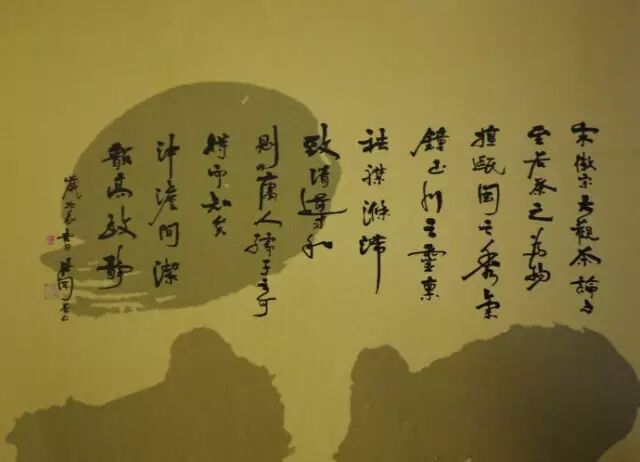 宋徽宗大觀茶論
至若茶之為物
擅甌閩之秀氣
鐘山川之靈稟
祛襟滌滯
致清導和
則非庸人孺子之可
得而知矣
沖澹間潔
韻高致靜